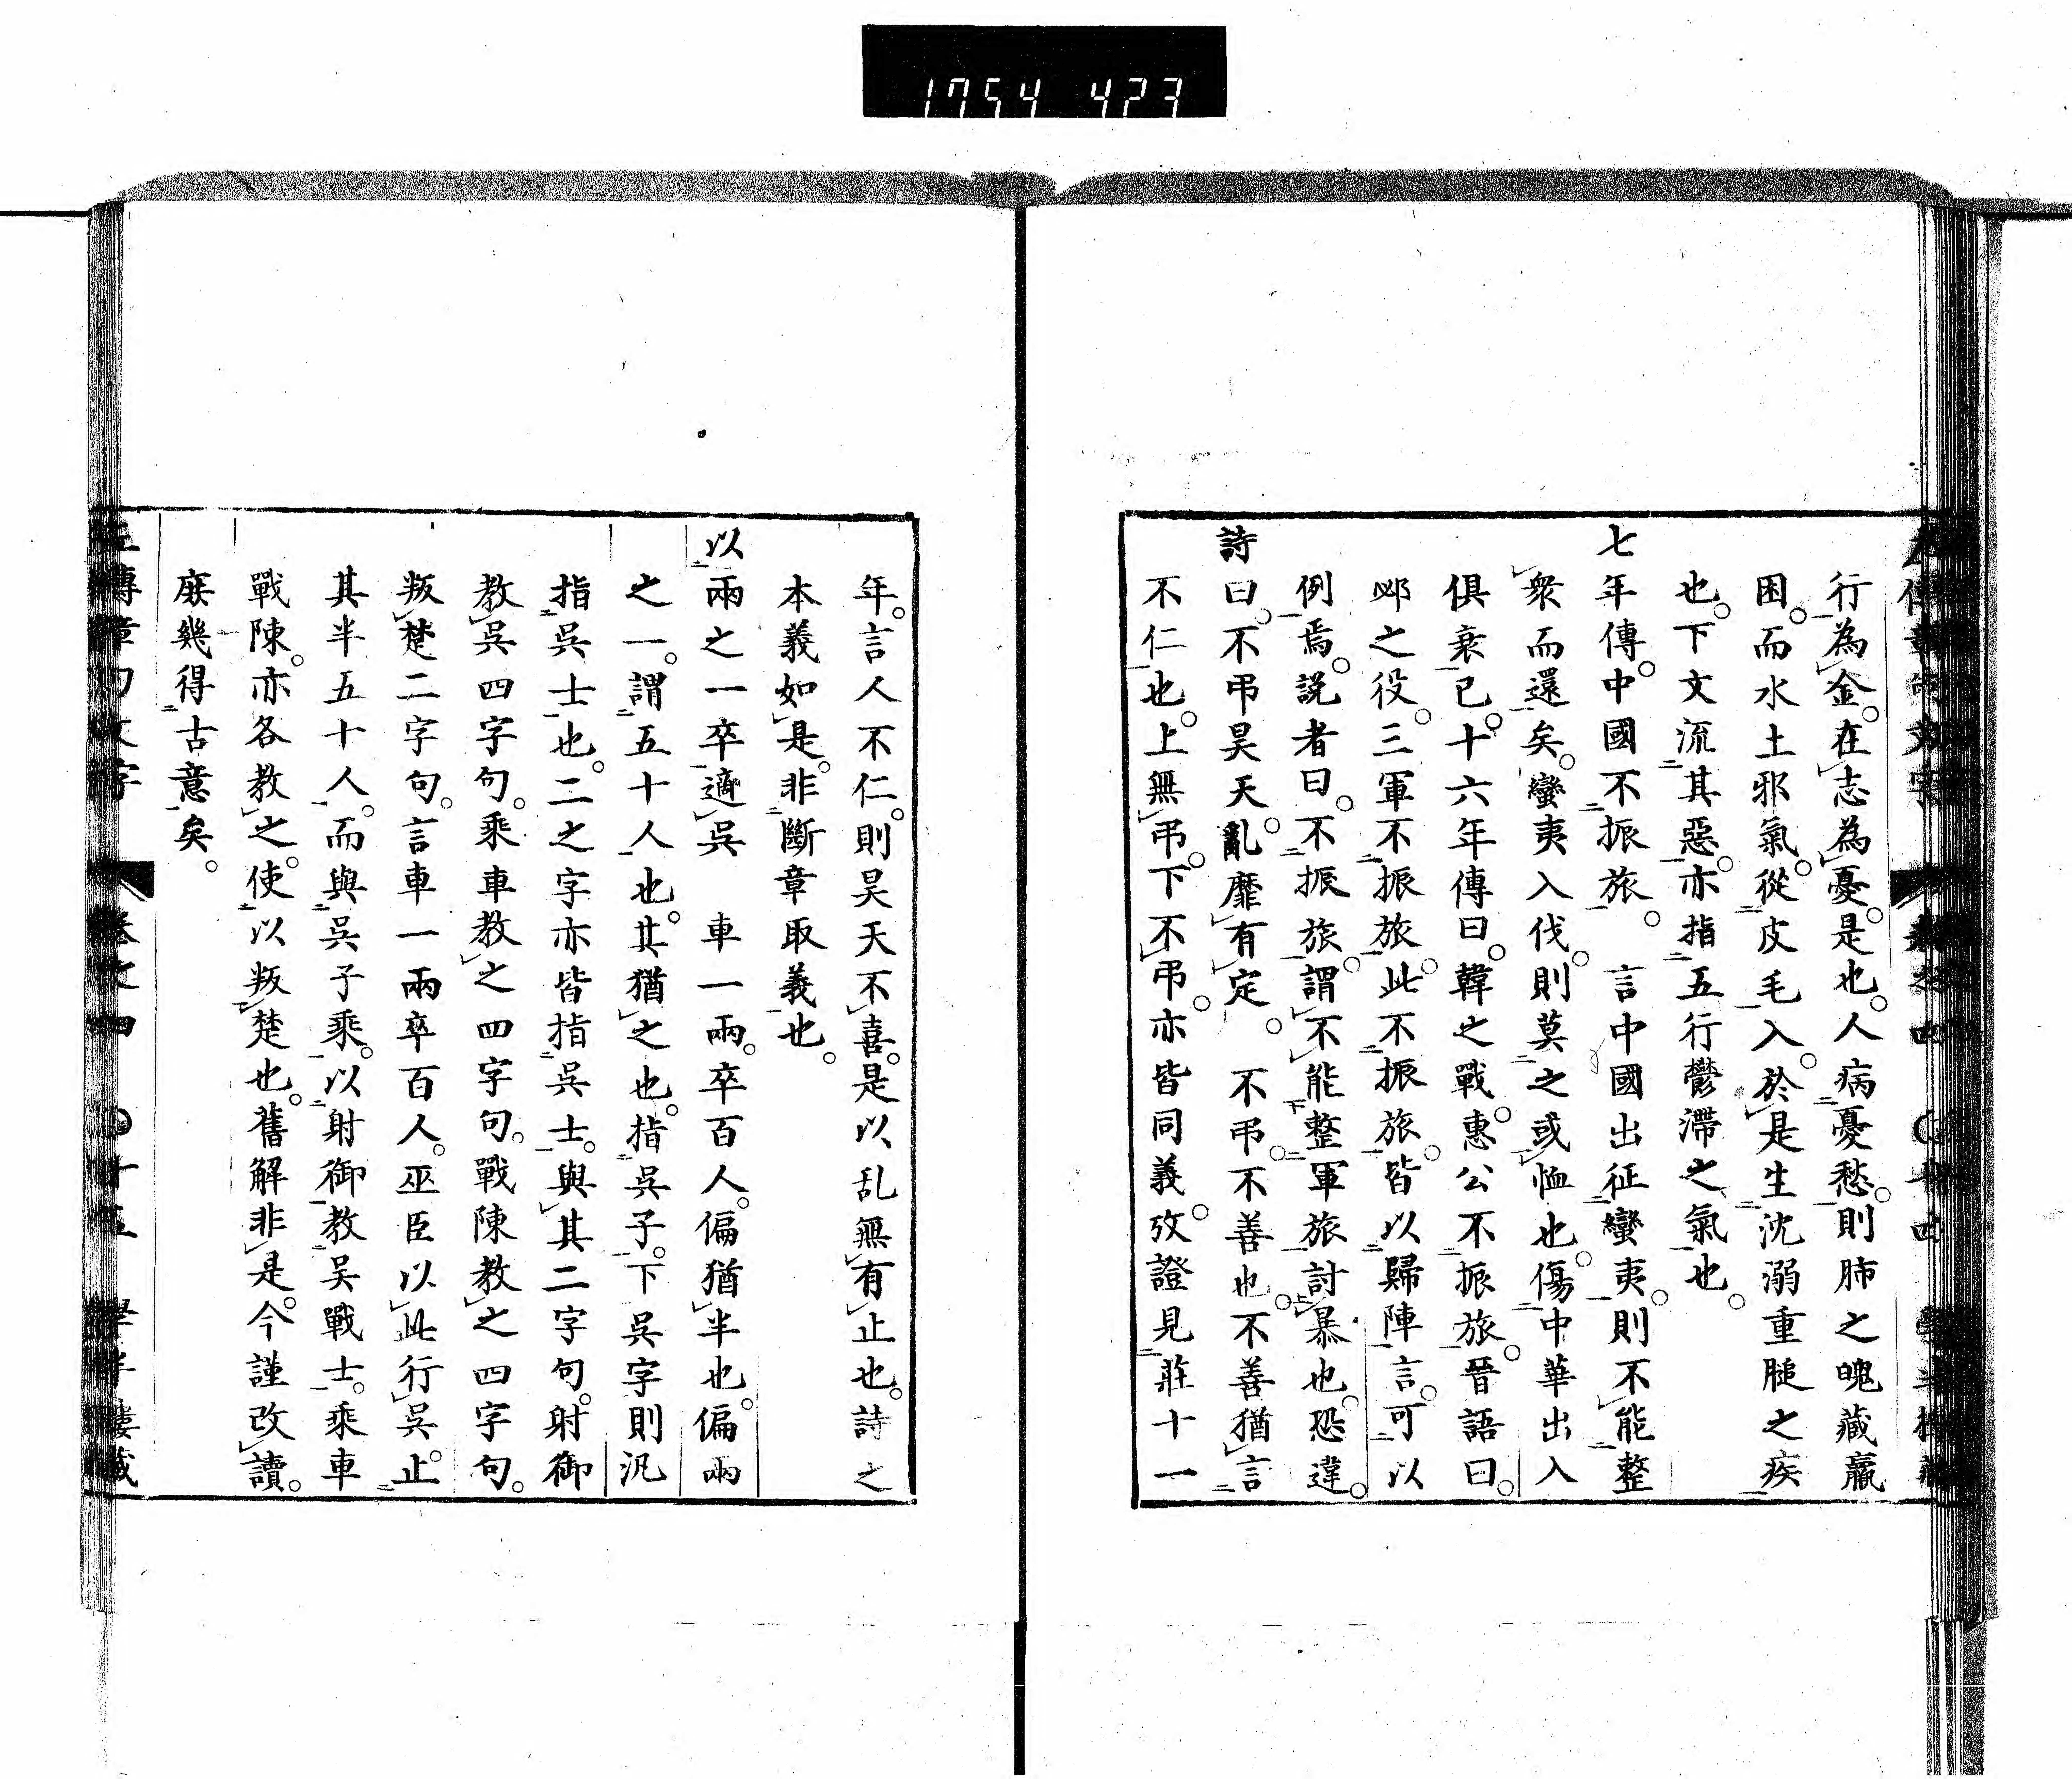 1754 423
行為金。在志為憂。是也。人病憂愁。則肺之魄藏羸
困。而水土邪氣。從皮毛入。於是生沈溺重膇之疾
也。下文流其惡。亦指五行鬱滯之氣也。
七年傳。中國不振旅。 言中國出征蠻夷。則不能整
衆而還矣。蠻夷入伐。則莫之或恤也。傷中華出入
俱衰已。十六年傳曰。韓之戰。惠公不振旅。晉語曰。
邲之役。三軍不振旅。此不振旅。皆以歸陣言。可以
例焉。説者曰。不振旅。謂不能整軍旅討暴也。恐違。
詩曰。不弔昊天。亂靡有定。 不弔。不善也。不善猶言
不仁也。上無弔。下不弔。亦皆同義。攷證見莊十一
年。言人不仁。則昊天不喜。是以乱無有止也。詩之
本義如是。非斷章取義也。
以兩之一卒適吳 車一兩。卒百人。偏猶半也。偏兩
之一。謂五十人也。其猶之也。指吳子。下吳字則汎
指吳士也。二之字亦皆指吳士。與其二字句。射御
教吳四字句。乘車教之四字句。戰陳教之四字句。
叛楚二字句。言車一兩卒百人。巫臣以此行吳。止
其半五十人。而與吳子乘。以射御教吴戰士。乘車
戰陳。亦各教之。使以叛楚也。舊解非是。今謹改讀。
庶幾得古意矣。
左傳章句文字 卷之四 〇十五 學半樓藏